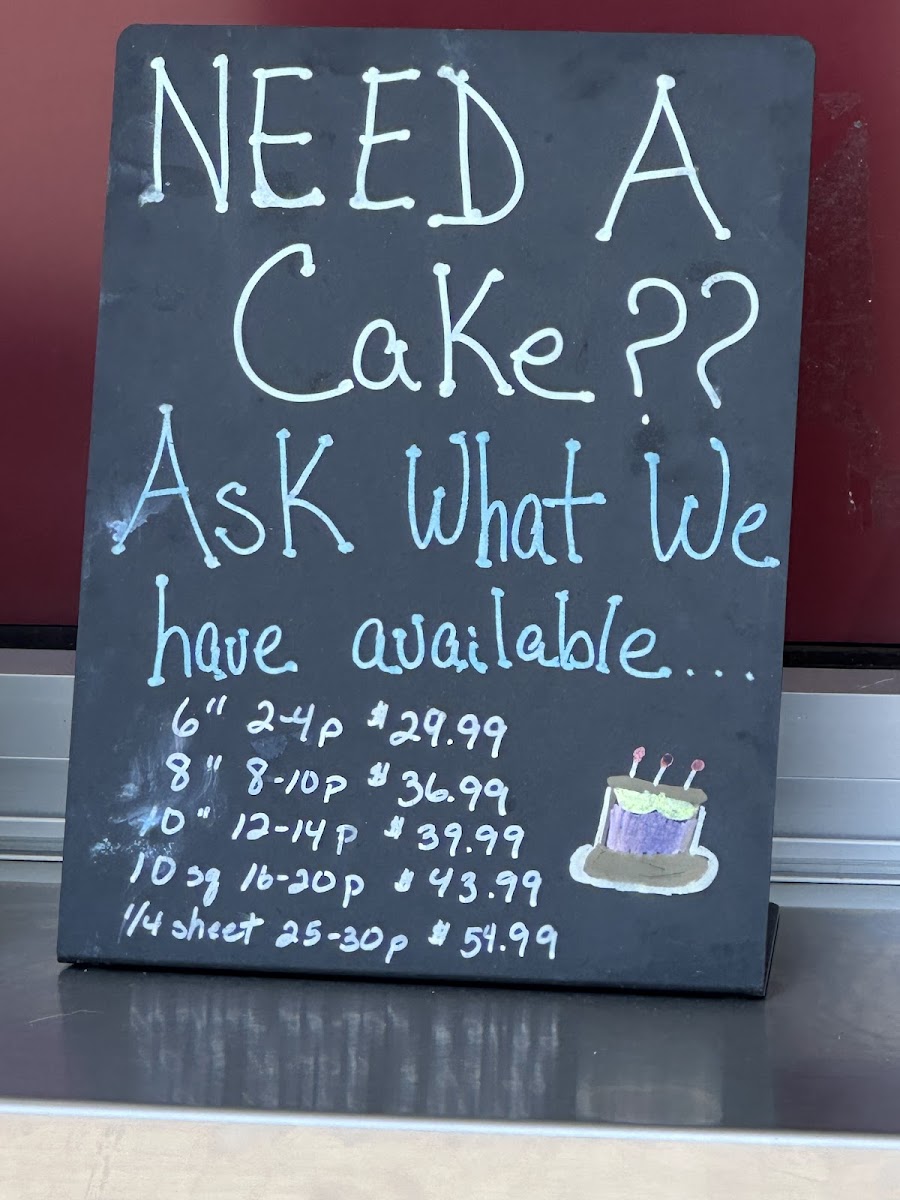 NEED A
Cake ??
Ask What We
have available...
6" 2-4p $29.99
8" 8-10p $36.99
10" 12-14p $39.99
10 sq 16-20p $43.99
1/4 sheet 25-30p $54.99